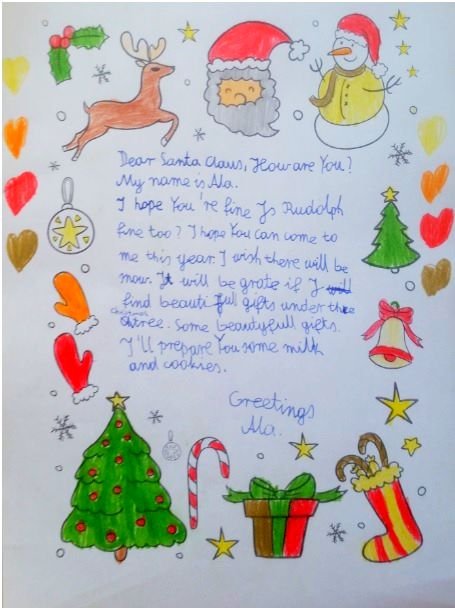 Dear Santa Claus, How are You?
My name is Ala.
I hope You're fine Is Rudolph
fine too? I hope You can come to
me this year. I wish there will be
snow. It will be grate if I
find beauti full gifts under the
Christmas
tree. Some beautyfull gifts.
I'll prepare You some milk
and cookies.
Greetings
Ala.